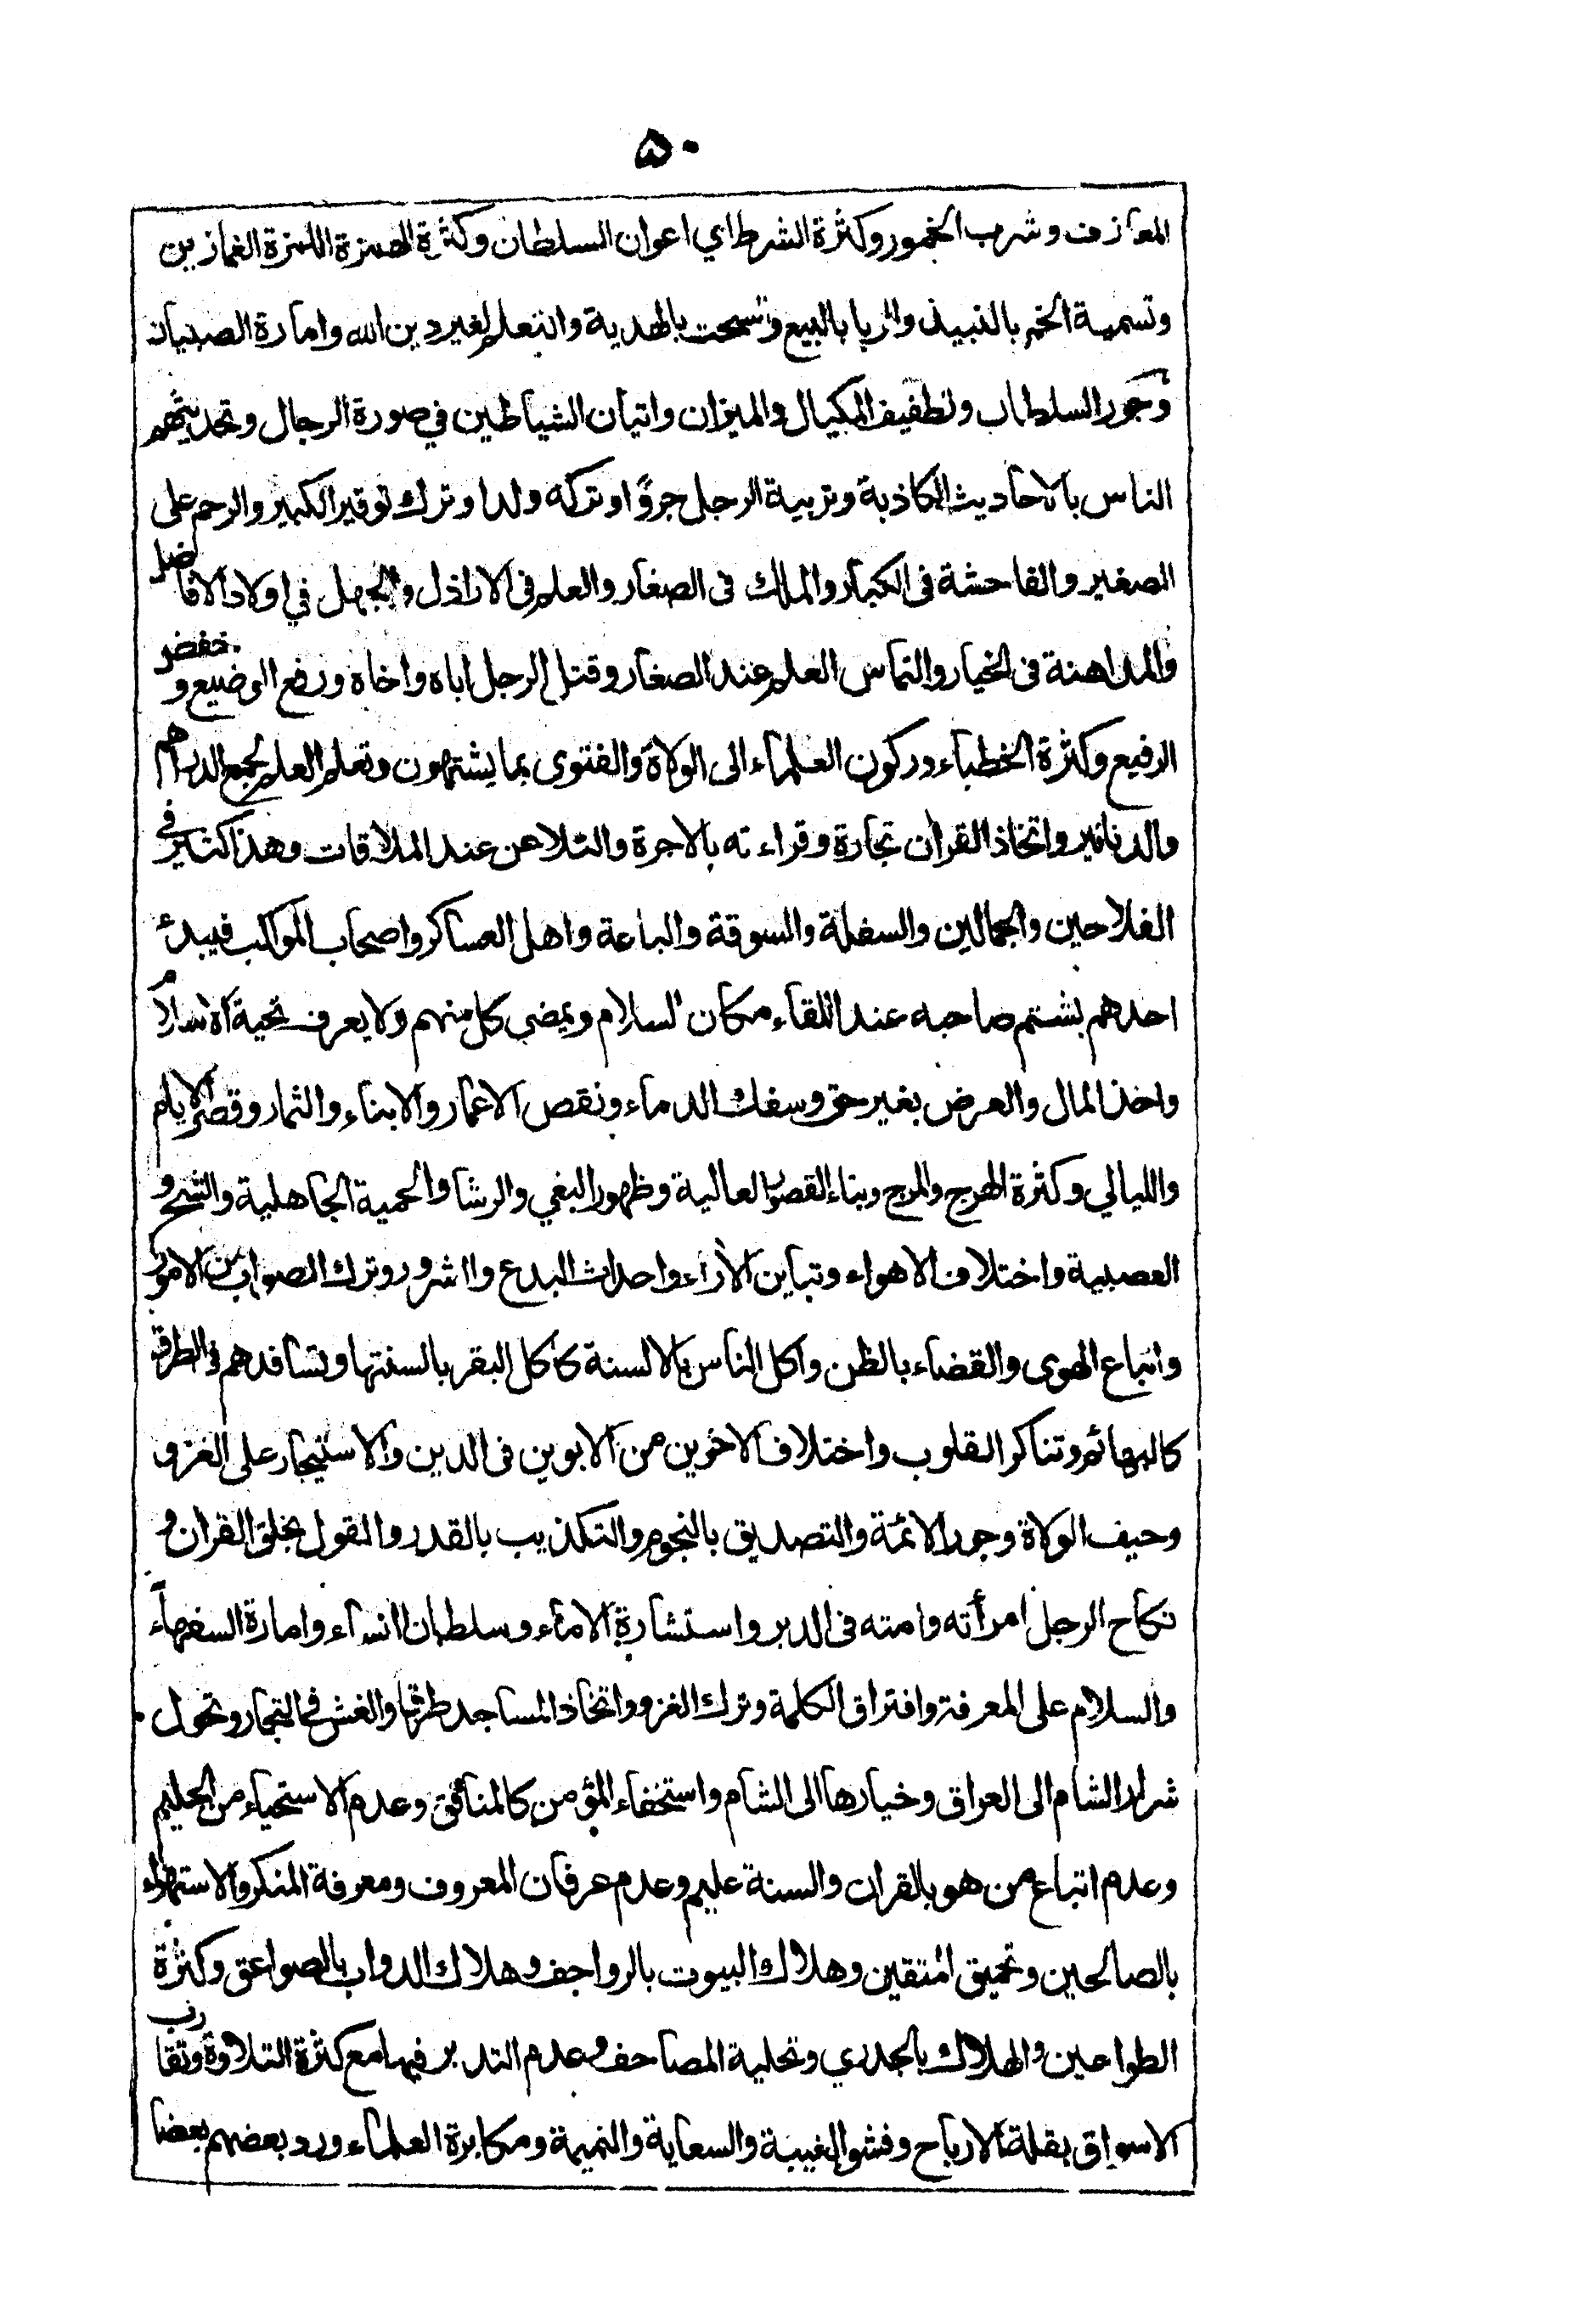 ۵۰
المعازف وشرب الخمور وكثرة الشرط اي اعوان السلطان وكثرة الهمزة اللمزة الغمازين
وتسمية الخمر بالنبيذ والربا بالبيع والسحت بالهدية والتعلم لغير دين الله وامارة الصبيان
وجور السلطان وتطفيف المكيال والميزان واتيان الشياطين في صورة الرجال وتحديثهم
الناس بالاحاديث الكاذبة وتربية الرجل جروًا وتركه ولدا وترك توقير الكبير والرحم على
الصغير والفاحشة فى الكبار والملك فى الصغار والعلم فى الاراذل والجهل في اولاد الافاضل
والمداهنة فى الخيار والتماس العلم عند الصغار وقتل الرجل اباه واخاه ورفع الوضيع وخفض
الرفيع وكثرة الخطباء وركون العلماء الى الولاة والفتوى بما يشتهون وتعلم العلم لجمع الدراهم
والدنانير واتخاذ القران تجارة وقراءته بالاجرة والتلاعن عند الملاقات وهذا كثير في
الفلاحين والجمالين والسفلة والسوقة والباعة واهل العساكر واصحاب المواكب فيبدء
احدهم بشتم صاحبه عند اللقاء مكان السلام ويمضى كل منهم ولا يعرف تحية الاسلام
واخذ المال والعرض بغير حق وسفك الدماء ونقص الاعمار والابناء والثمار وقصر الايام
والليالي وكثرة الهرج والمرج وبناء القصور العالية وظهور البغي والرشا والحمية الجاهلية والشح و
العصبية واختلاف الاهواء وتباين الأراء واحداث البدع والشرور وترك الصواب من الامور
واتباع الهوى والقضاء بالظن واكل الناس بالالسنة كاكل البقر بالسنتها وتسافدهم فى الطرق
كالبهائم وتناكر القلوب واختلاف الاخوين من الابوين فى الدين والاستيجار على الغزو
وحيف الولاة وجور الائمة والتصديق بالنجوم والتكذيب بالقدر والقول بخلق القران و
نكاح الرجل امرأته وامته فى الدبر واستشارة الاماء وسلطان النساء وامارة السفهاء
والسلام على المعرفة وافتراق الكلمة وترك الغزو واتخاذ المساجد طرقا والغش فى التجار وتحول
شرار الشام الى العراق وخيارها الى الشام واستخفاء المؤمن كالمنافق وعدم الاستحياء من الحليم
وعدم اتباع من هو بالقران والسنة عليم وعدم عرفان المعروف ومعرفة المنكر والاستهزاء
بالصالحين وتحميق المتقين وهلاك البيوت بالرواجف وهلاك الدواب بالصواعق وكثرة
الطواحين والهلاك بالجدري وتحلية المصاحف وعدم التدبر فيها مع كثرة التلاوة وتقارب
الاسواق بقلة الارباح وفشو الغيبة والسعاية والنميمة ومكابرة العلماء ورد بعضهم بعضا